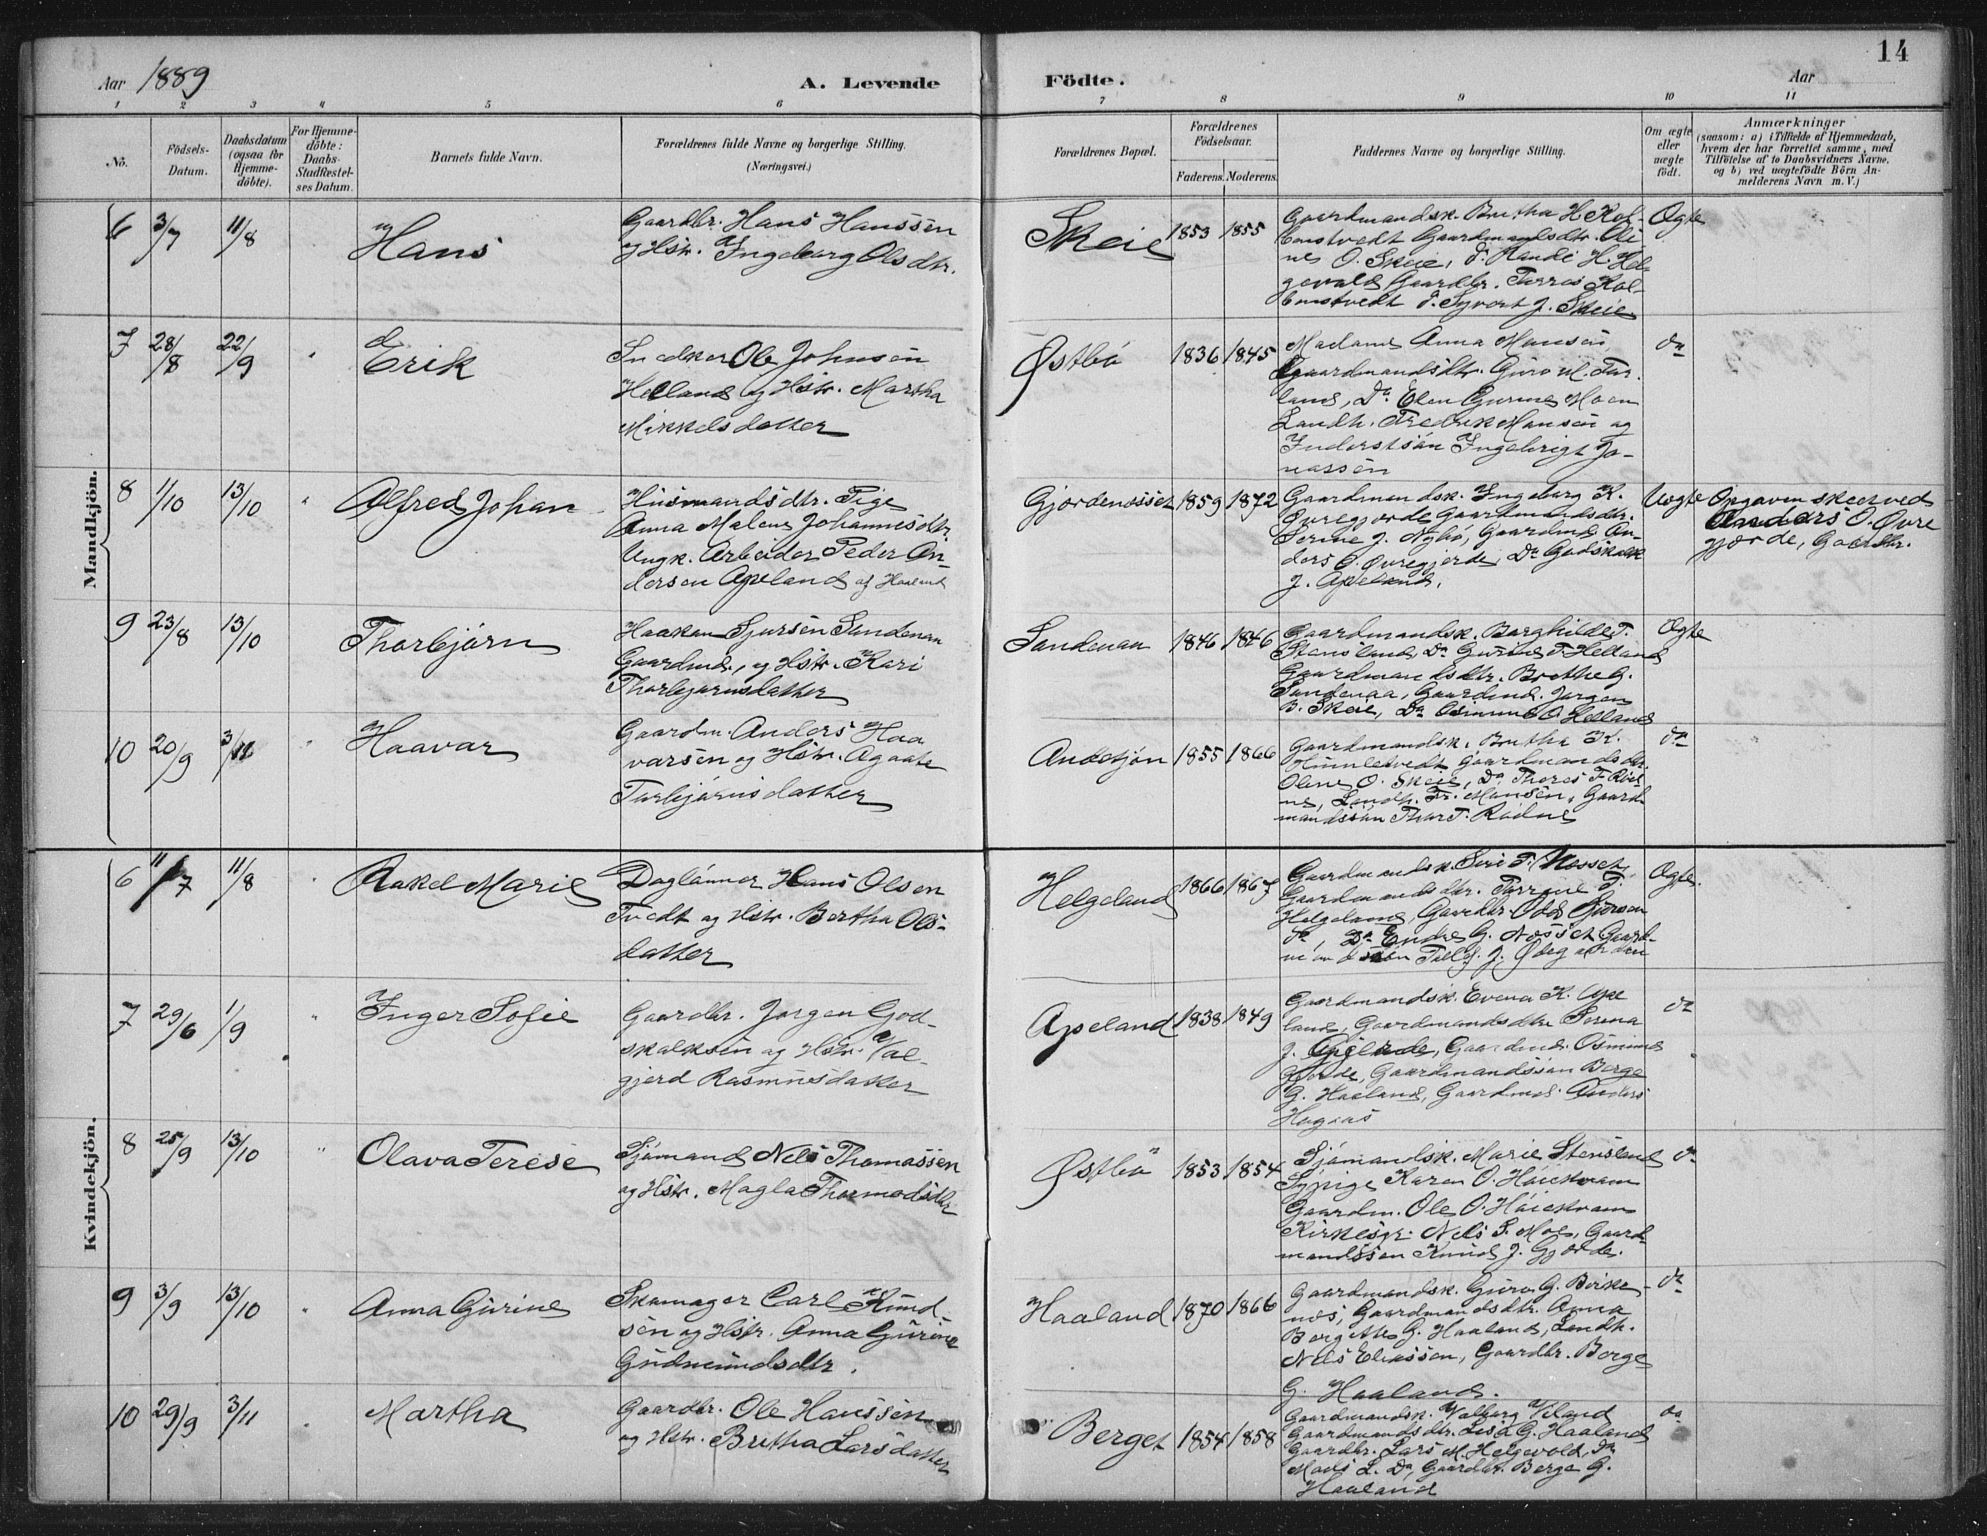 14
Aar 1889
A. Levende Födte.
Aar
1 2 3 4 5 6 7 8 9 10 11
No.
Födsels-
Datum.
Daabsdatum
(ogsaa for
Hjemme-
döbte).
For Hjemme-
döbte:
Daabs-
Stadfæstel-
ses Datum.
Barnets fulde Navn.
Forældrenes fulde Navne og borgerlige Stilling.
(Næringsvei.)
Forældrenes Bopæl.
Forældrenes
Födselsaar.
Faderens. Moderens.
Faddernes Navne og borgerlige Stilling.
Om ægte
eller
uægte
født.
Anmærkninger
(saasom: a) i Tilfælde af Hjemmedaab,
hvem der har forrettet samme, med
Tilföielse af to Daabsvidners Navne,
og b) ved uægtefödte Börn An-
melderens Navn m. V.)
Mandkjön.
6 3/7 11/8 Hans
Gaardbr. Hans Hanssen
og Hstr. Ingeborg Olsdtr.
Skeie 1853 1855
Gaardmandsk. Brutha H. Kol-
Gaardmandsdtr. Oli-
ne O. Skeie, H. Hel-
gevold Gaardbr.
J. Skeie
Ægte
7 28/8 22/9 " Erik
Snedker Ole Johnsen
Helland og Hstr. Martha
Mikkelsdatter
Østbö 1836 1845
Madame Anna Monsen,
Gaardmandsdtr. Guro M.
land, Da Elen Gurine Moen
Landh. Fredrik Monsen og
Inderstsön Ingebrigt Jo-
nassen
do
8 1/10 13/10 " Alfred Johan
Husmandsdtr. Pige
Anna Malene Johannesdtr.
Ungk. Arbeider Peder An-
dersen Apeland af Haaland
Gjerdenesset 1859 1872
Gaardmandsk. Ingeborg K.
Øvregjerde Gaardmandsdtr.
Serine J. Nybö, Gaardmd. An-
ders O. Øvregjerde, Da Godskalk
J. Apeland.
Uægte
Opgaven skeer ved
Anders O. Øvre
gjerde, Gaardbr.
9 23/8 13/10 Thorbjörn
Haakon Sjursen Sandenaa
Gaardmd., og Hstr. Kari
Thorbjörnsdatter
Sandenaa 1846 1846
Gaardmandsk. Borghilde T.
Stensland, Da Gurine T. Helland
Gaardmandsdtr. Brothe G.
Sandenaa, Gaardmd. Jörgen
B. Skeie, Da Osmund O. Helland
Ægte
10 20/9 3/11 " Haavar
Gaardm. Anders Haa
varsen og Hstr. Agaate
Torbjörnsdatter
1855 1866
Gaardmandsk. Brutha K.
Gaardmandsdtr.
Olene O. Skeie, Da
Landh. Fr. Monsen, Gaard-
mandssön Thor T. Rödne
do
Kvindekjön.
6 11/7 11/8 " Rakel Marie
Daglönner Hans Olsen
Tvedt og Hstr. Bertha Ols-
datter
Helgeland 1866 1867
Gaardmandsk. Siri T. Nesset,
Gaardmandsdtr. Torrine T.
Helgeland, Gaardbr. Odd Sjursen
do, Da Endre G. Nesset Gaard-
mandssön J.
Ægte.
7 29/6 1/9 " Inger Sofie
Gaardbr. Jörgen God-
skalksen og Hstr. Val-
gjerd Rasmusdatter
Apeland 1838 1849
Gaardmandsk. Evena K. Ape
land, Gaardmandsdtr Serena
J. Apeland, Gaardmd. Osmund
Gjerde, Gaardmandssön Berge
G. Haaland, Gaardmd. Anders
Hogaas
do
8 25/9 13/10 " Olava Terese
Sjömand Nels Thomassen
og Hstr. Magla Thormodsdtr
Østbö 1853 1854
Sjömandsk. Marie Stensland
Sypige Karen O. Höiekvam
Gaardm. Ole O. Höiekvam
Kirkesgr. Nels S. Moe, Gaard-
mandssön Knud J. Gjerde.
do
9 3/9 13/10 " Anna Gurine
Skomager Carl Knud-
sen og Hstr. Anna Gurine
Gudmundsdtr.
Haaland 1870 1866
Gaardmandsk. Guro G. Birke-
nes, Gaardmandsdtr. Anna
Bergitte G. Haaland, Landh.
Nels Eliassen, Gaardbr. Berge
G. Haaland.
do
10 29/9 3/11 " Martha
Gaardbr. Ole Hanssen
og Hstr. Brutha Larsdatter
Berget 1854 1858
Gaardmandsk. Valborg Veland
Gaardmandsdtr. Lisa G. Haaland
Gaardbr. Lars M. Helgevold, Da
Mons L. Do, Gaardbr. Berge G.
Haaland
do